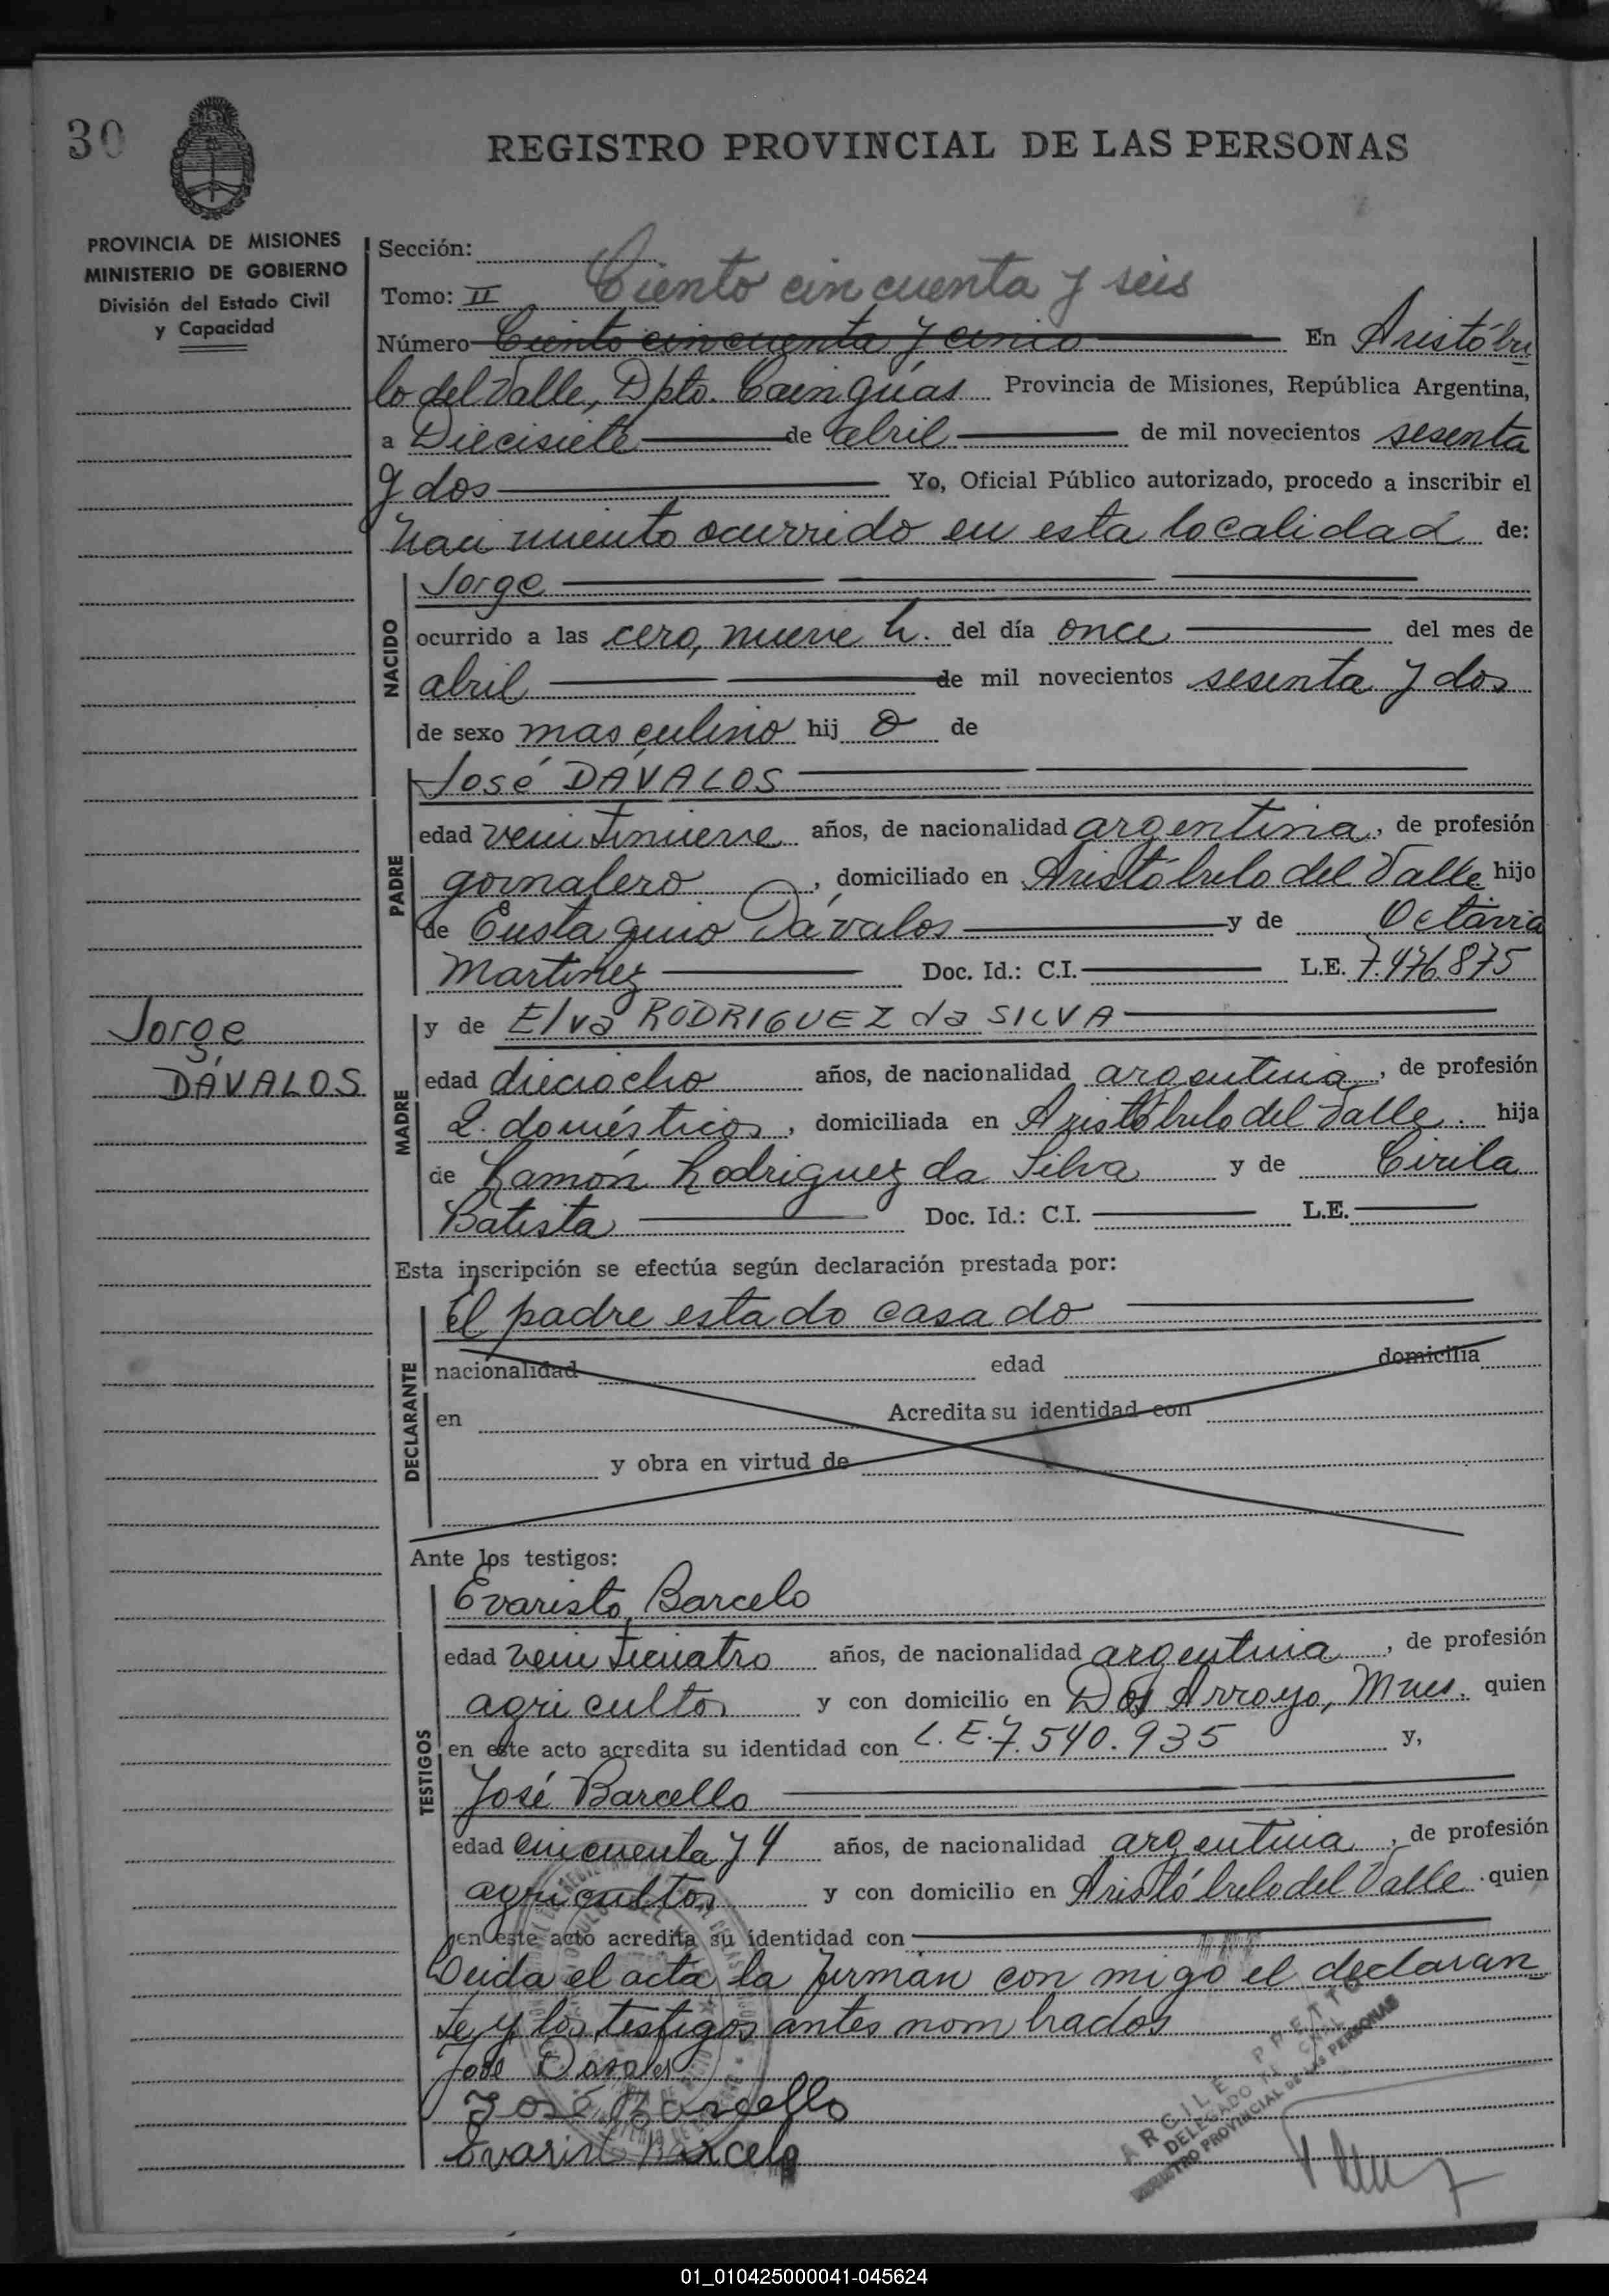 30
REGISTRO PROVINCIAL DE LAS PERSONAS
PROVINCIA DE MISIONES
MINISTERIO DE GOBIERNO
División del Estado Civil
y Capacidad
Sección:
Tomo: II Ciento cincuenta y seis
Número Ciento cincuenta y cinco En Aristóbu
lo del Valle, Dpto. Cainguas Provincia de Misiones, República Argentina,
a Diecisiete de abril de mil novecientos sesenta
y dos Yo, Oficial Público autorizado, procedo a inscribir el
nacimiento ocurrido en esta localidad de:
NACIDO
Jorge
ocurrido a las cero, nueve h. del día once del mes de
abril de mil novecientos sesenta y dos
de sexo masculino hij o de
PADRE
José DÁVALOS
edad veintinueve años, de nacionalidad argentina, de profesión
gornalero, domiciliado en Aristóbulo del Valle hijo
de Eustaquio Dávalos y de Octavia
Martinez Doc. Id.: C.I. L.E. 7.476.875
Jorge
DÁVALOS
MADRE
y de Elva RODRIGUEZ da SILVA
edad dieciocho años, de nacionalidad argentina, de profesión
Q. domésticos, domiciliada en Aristóbulo del Valle. hija
de Ramón Rodriguez da Silva y de Cirila
Batista Doc. Id.: C.I. L.E.
Esta inscripción se efectúa según declaración prestada por:
DECLARANTE
El padre estado casado
nacionalidad edad domicilia
en Acredita su identidad con
y obra en virtud de
Ante los testigos:
TESTIGOS
Evaristo Barcelo
edad veinticuatro años, de nacionalidad argentina, de profesión
agricultor y con domicilio en Dos Arroyo, Mnes. quien
en este acto acredita su identidad con L.E. 7.540.935 y,
José Barcello
edad cincuenta y 4 años, de nacionalidad argentina, de profesión
agricultor y con domicilio en Aristóbulo del Valle. quien
en este acto acredita su identidad con
Leida el acta la firman con migo el declaran
te y los testigos antes nombrados
José Davales
José Barcello
Evarist Barcelo
ARGILE PRETTO
DELEGADO
REGISTRO PROVINCIAL DE LAS PERSONAS
01_010425000041-045624